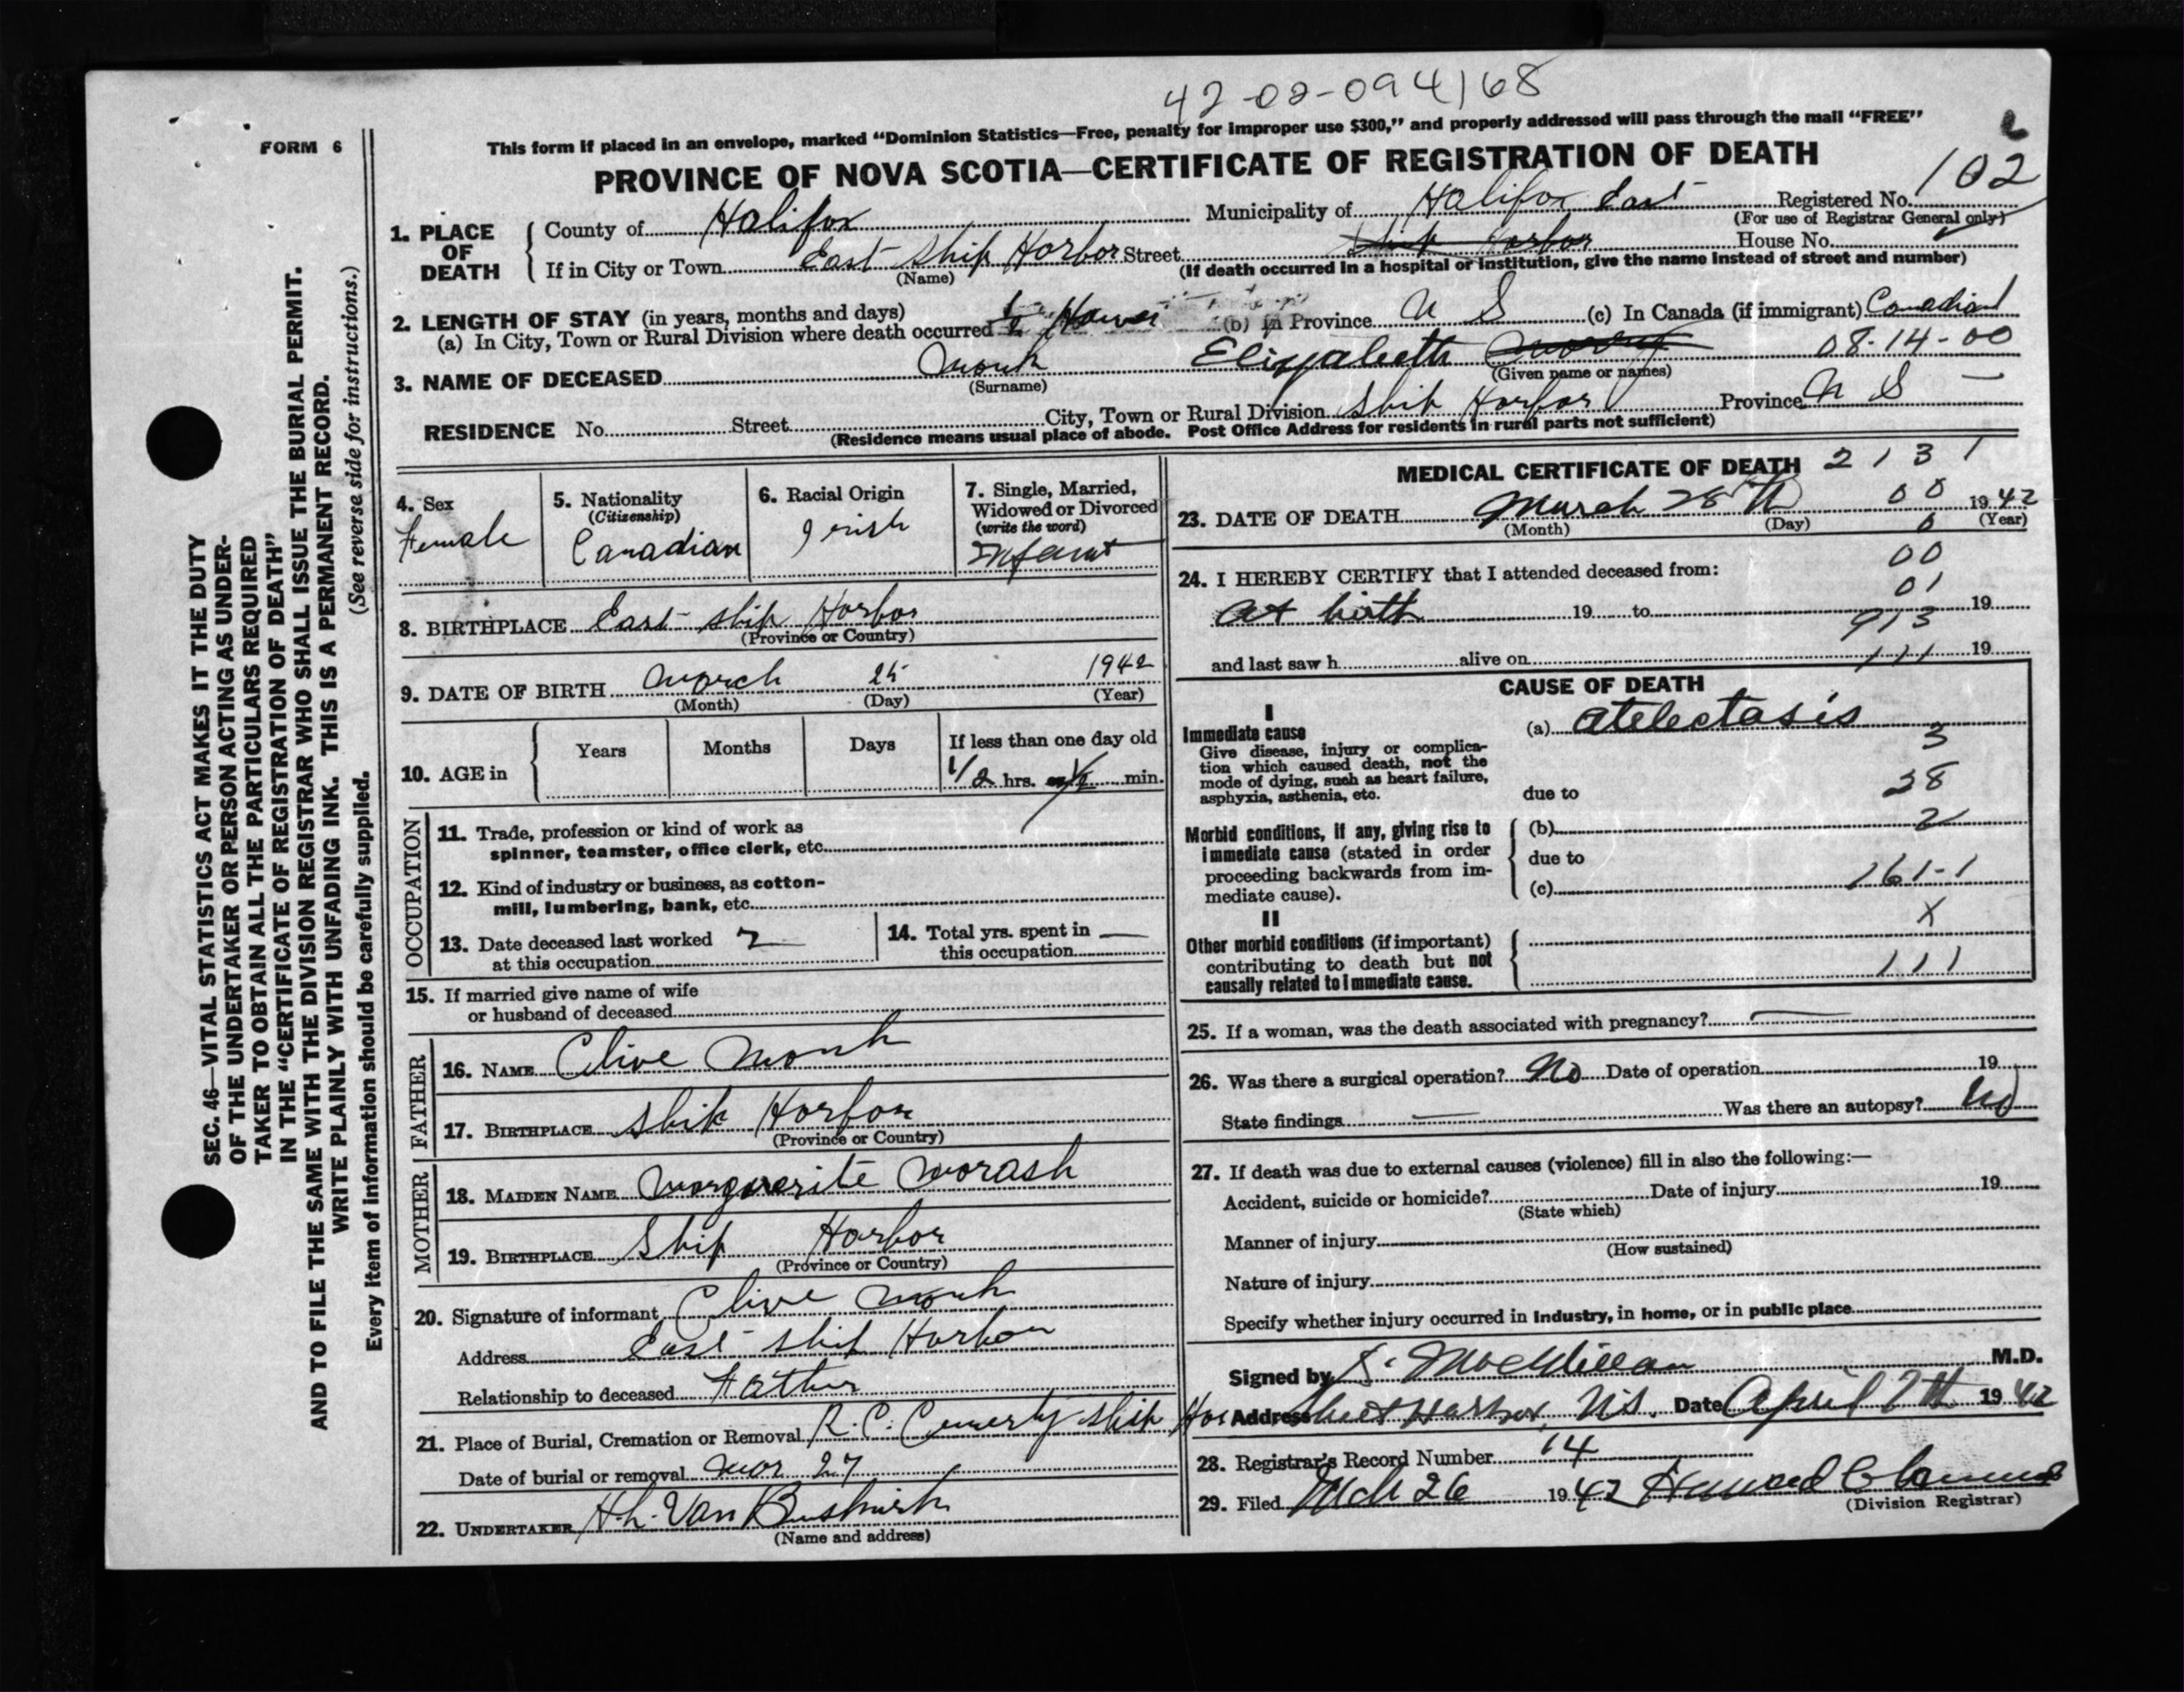 42-02-094168
FORM 6
This form if placed in an envelope, marked "Dominion Statistics—Free, penalty for improper use $300," and properly addressed will pass through the mail "FREE"
PROVINCE OF NOVA SCOTIA—CERTIFICATE OF REGISTRATION OF DEATH
102
1. PLACE OF DEATH
County of Halifax Municipality of Halifax East Registered No.
(For use of Registrar General only)
If in City or Town East Ship Harbor Street Ship Harbor House No.
(Name) (If death occurred in a hospital or institution, give the name instead of street and number)
2. LENGTH OF STAY (in years, months and days)
(a) In City, Town or Rural Division where death occurred ½ Hour (b) in Province N S (c) In Canada (if immigrant) Canadian
3. NAME OF DECEASED Monk Elizabeth 08-14-00
(Surname) (Given name or names)
RESIDENCE No. Street City, Town or Rural Division Ship Harbor Province N S —
(Residence means usual place of abode. Post Office Address for residents in rural parts not sufficient)
4. Sex
Female
5. Nationality
(Citizenship)
Canadian
6. Racial Origin
Irish
7. Single, Married, Widowed or Divorced
(write the word)
Infant
8. BIRTHPLACE East Ship Harbor
(Province or Country)
9. DATE OF BIRTH March 25 1942
(Month) (Day) (Year)
10. AGE in Years Months Days If less than one day old
1/2 hrs. min.
OCCUPATION
11. Trade, profession or kind of work as
spinner, teamster, office clerk, etc.
12. Kind of industry or business, as cotton-
mill, lumbering, bank, etc.
13. Date deceased last worked
at this occupation
14. Total yrs. spent in —
this occupation
15. If married give name of wife
or husband of deceased
FATHER
16. NAME Clive Monk
17. BIRTHPLACE Ship Harbor
(Province or Country)
MOTHER
18. MAIDEN NAME Marguerite Morash
19. BIRTHPLACE Ship Harbor
(Province or Country)
20. Signature of informant Clive Monk
Address East Ship Harbor
Relationship to deceased Father
21. Place of Burial, Cremation or Removal R.C. Cemerty Ship Har
Date of burial or removal Mar 27
22. UNDERTAKER H.L. Van Buskirk
(Name and address)
MEDICAL CERTIFICATE OF DEATH 2131
23. DATE OF DEATH March 28th 00 1942
(Month) (Day) 0 (Year)
00
24. I HEREBY CERTIFY that I attended deceased from:
01
At birth 19 to 19
913
and last saw h alive on 111 19
CAUSE OF DEATH
I
Immediate cause
Give disease, injury or complica-
tion which caused death, not the
mode of dying, such as heart failure,
asphyxia, asthenia, etc.
(a) Atelectasis
3
due to 38
Morbid conditions, if any, giving rise to
immediate cause (stated in order
proceeding backwards from im-
mediate cause).
(b) 2
due to
(c) 161-1
II
X
Other morbid conditions (if important)
contributing to death but not
causally related to immediate cause.
111
25. If a woman, was the death associated with pregnancy? —
26. Was there a surgical operation? No Date of operation 19
State findings — Was there an autopsy? No
27. If death was due to external causes (violence) fill in also the following:—
Accident, suicide or homicide? Date of injury 19
(State which)
Manner of injury
(How sustained)
Nature of injury
Specify whether injury occurred in industry, in home, or in public place
Signed by MacMillan M.D.
Address Sheet Harbor, N.S. Date April 7th 1942
28. Registrar's Record Number 14
29. Filed Mch 26 1942
(Division Registrar)
SEC. 46—VITAL STATISTICS ACT MAKES IT THE DUTY
OF THE UNDERTAKER OR PERSON ACTING AS UNDER-
TAKER TO OBTAIN ALL THE PARTICULARS REQUIRED
IN THE "CERTIFICATE OF REGISTRATION OF DEATH"
AND TO FILE THE SAME WITH THE DIVISION REGISTRAR WHO SHALL ISSUE THE BURIAL PERMIT.
WRITE PLAINLY WITH UNFADING INK. THIS IS A PERMANENT RECORD.
(See reverse side for instructions.)
Every item of information should be carefully supplied.